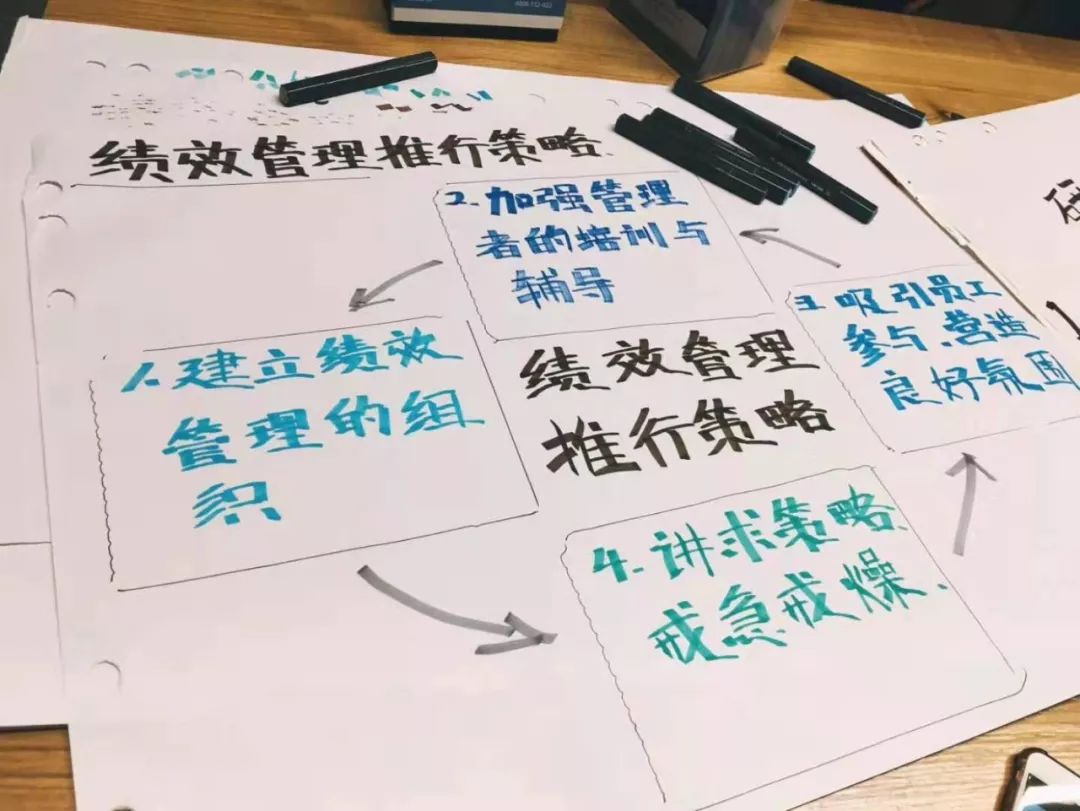 绩效管理推行策略
2.加强管理
者的培训与
辅导
3.吸引员工
参与.营造
良好氛围
1.建立绩效
管理的组
织
绩效管理
推行策略
4.讲求策略
戒急戒燥.